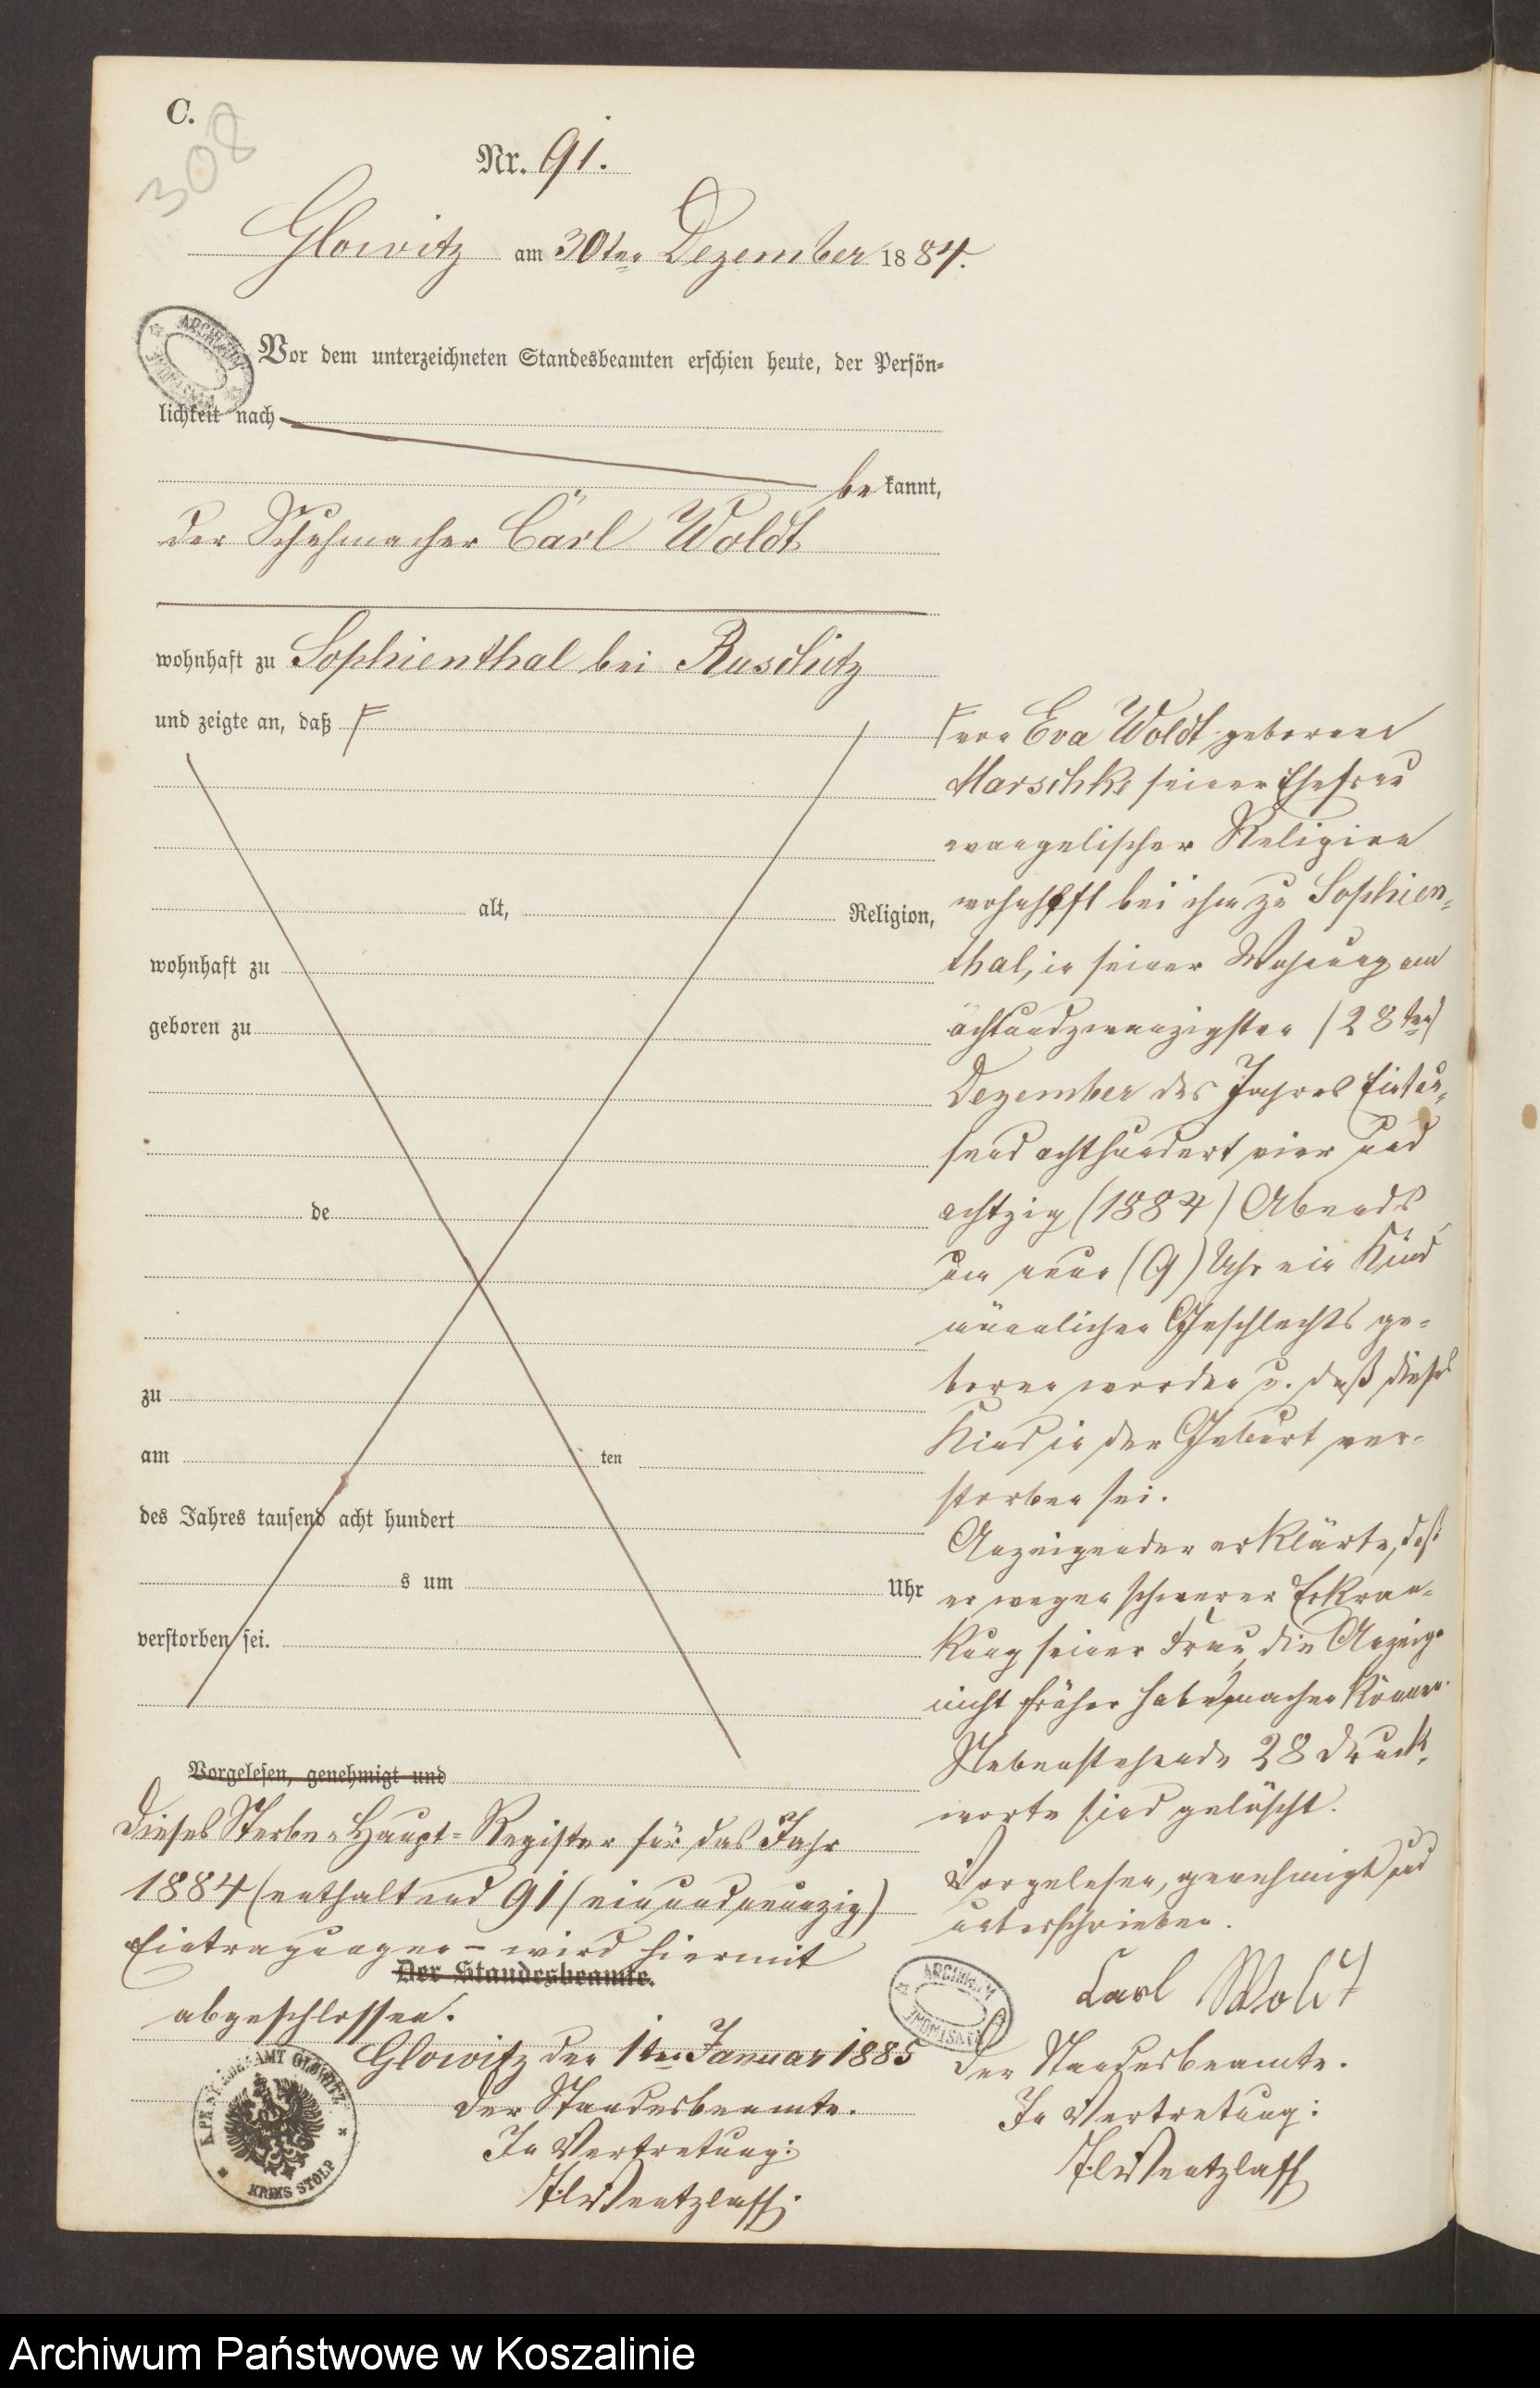 C.
308
Nr. 91.
Glowitz am 30ten Dezember 1884.
Vor dem unterzeichneten Standesbeamten erschien heute, der Persön-
lichkeit nach
be kannt,
der Schuhmacher Carl Woldt
wohnhaft zu Sophienthal bei Ruschitz
und zeigte an, daß
alt, Religion,
wohnhaft zu
geboren zu
de
zu
am ten
des Jahres tausend acht hundert
s um Uhr
verstorben sei.
von Eva Woldt geborene
Marschke seiner Ehefrau
evangelischer Religion
wohnhaft bei ihm zu Sophien-
thal, in seiner Wohnung am
achtundzwanzigsten (28ten)
Dezember des Jahres Eintau-
send achthundert vier und
achtzig (1884) Abends
um neun (9) Uhr ein Kind
männlichen Geschlechts ge-
boren worden u. daß dieses
Kind in der Geburt ver-
storben sei.
Anzeigender erklärte, daß
er wegen schwerer Erkran-
kung seiner Frau die Anzeige
nicht früher habe machen können.
Nebenstehende 28 Druck-
worte sind gelöscht.
Vorgelesen, genehmigt und
unterschrieben.
Carl Woldt
Der Standesbeamte.
In Vertretung:
Wentzlaff
Vorgelesen, genehmigt und
Dieses Sterbe-Haupt-Register für das Jahr
1884 (enthaltend 91 (einundneunzig)
Eintragungen – wird hiermit
Der Standesbeamte.
abgeschlossen.
Glowitz den 1ten Januar 1885
Der Standesbeamte.
In Vertretung:
Wentzlaff.
KREIS STOLP
Archiwum Państwowe w Koszalinie